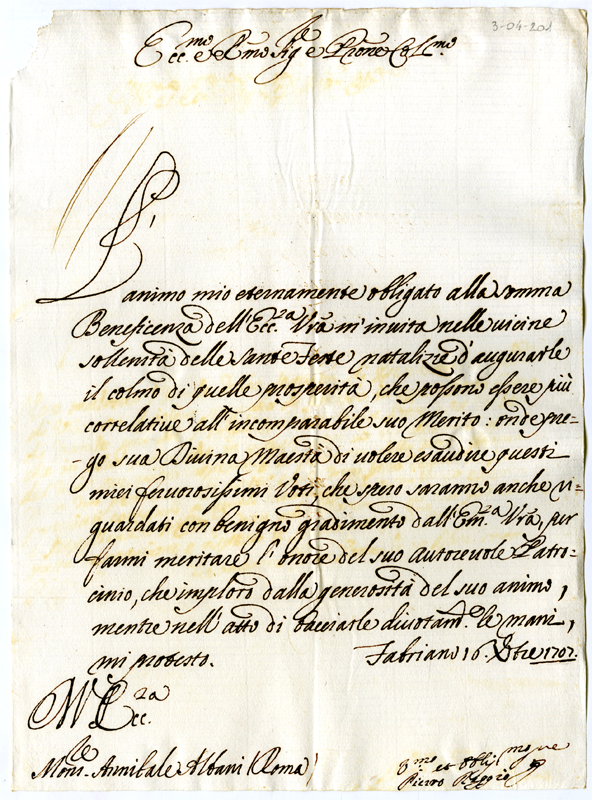 3-04-201
Ecc.mo e R.mo Sig.re e P.rone Col.mo
L'
animo mio eternamente obligato alla somma
Beneficenza dell'Ecc.za V.ra m'invita nelle vicine
sollenità delle Sante Feste natalize d'augurarle
il colmo di quelle prosperità, che possono essere più
correlative all'incomparabile suo Merito: onde pre=
=go sua Divina Maestà di volere esaudire questi
miei fervorosissimi Voti, che spero saranno anche ri=
guardati con benigno gradimento dall'Em.za V.ra, per
farmi meritare l'onore del suo autorevole Patro=
cinio, che imploro dalla generosità del suo animo,
mentre nell'atto di bacciarle divotam.te le mani,
mi protesto. Fabriano 16 Xbre 1707.
Ecc.za
Mons.re Annibale Albani (Roma)
Pietro